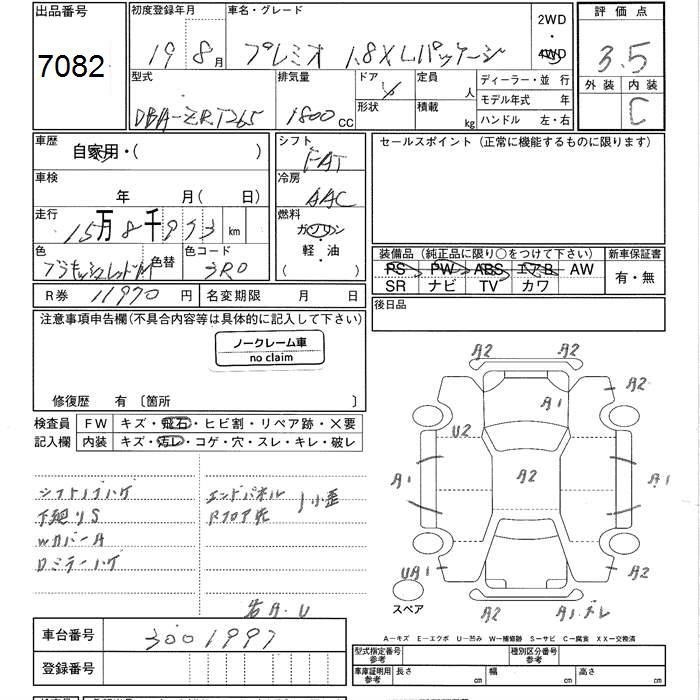 出品番号
7082
初度登録年月 19 8月
車名・グレード プレミオ 1.8XLパッケージ
2WD・4WD
評価点 3.5
外装 内装 C
型式 DBA-ZRT265
排気量 1800cc
ドア
形状
定員 人
積載 kg
ディーラー・並行
モデル年式 年
ハンドル 左・右
車歴 自家用・( )
車検 年 月(日)
走行 15万8千973km
色
色替
色コード 3R0
R券 11970円
名変期限 月 日
シフト FAT
冷房 AAC
燃料 ガソリン・軽油 ( )
セールスポイント (正常に機能するものに限ります)
装備品 (純正品に限り○をつけて下さい)
新車保証書
PS PW ABS エアB AW
SR ナビ TV カワ
有・無
後日品
注意事項申告欄(不具合内容等は具体的に記入して下さい)
ノークレーム車
no claim
修復歴 有 〔箇所 〕
検査員記入欄
FW キズ・飛石・ヒビ割・リペア跡・×要
内装 キズ・汚レ・コゲ・穴・スレ・キレ・破レ
シフトノブハゲ
下廻りS
WカバーA
Dミラーハゲ
エンドパネル
Rフロア先
小歪
A2 A2
A1 A2
U2
A1 A2 A1
UA1 A2
A2
スペア
A-キズ E-エクボ U-凹み W-補修跡 S-サビ C-腐食 XX-交換済
車台番号 3001997
登録番号
型式指定番号 参考
種別区分番号 参考
車庫証明用 参考 長さ cm 幅 cm 高さ cm